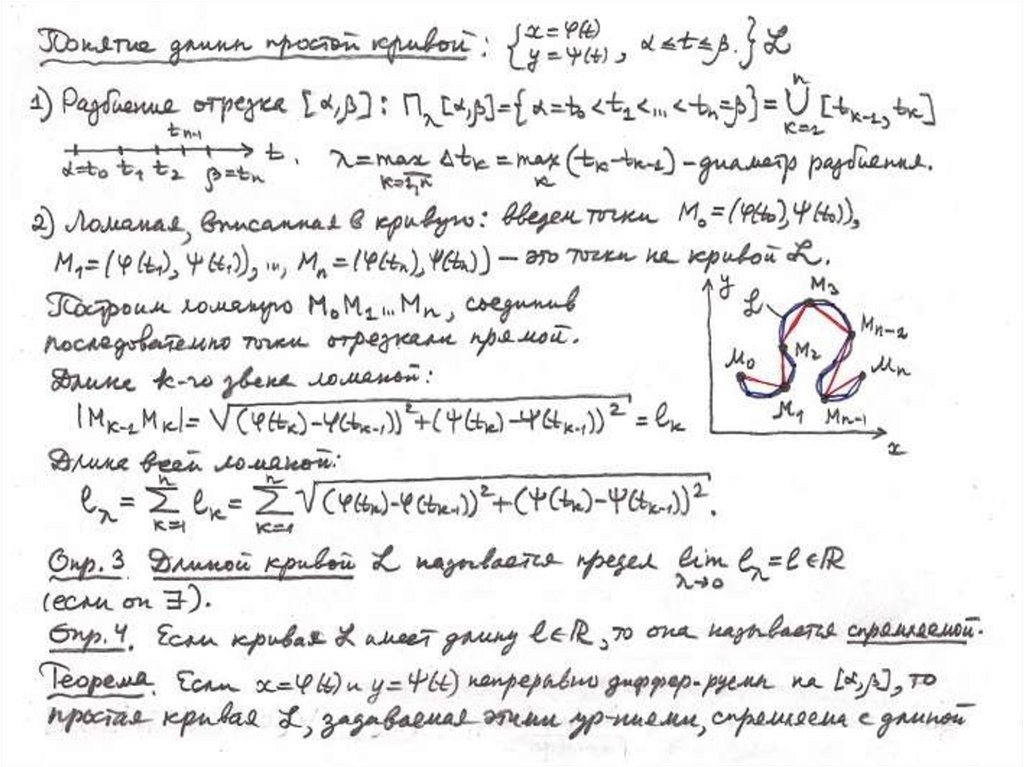 Понятие длины простой кривой: { x = φ(t) y = ψ(t), α ≤ t ≤ β. } L
1) Разбиение отрезка [α,β]: Π_λ[α,β] = {α = t₀ < t₁ < ... < tₙ = β} = ⋃_{k=1}^{n} [t_{k-1}, t_k]
α=t₀ t₁ t₂ t_{n-1} β=tₙ t. λ = max_{k=1,n} Δt_k = max_k (t_k - t_{k-1}) - диаметр разбиения.
2) Ломаная, вписанная в кривую: введем точки M₀ = (φ(t₀), ψ(t₀)),
M₁ = (φ(t₁), ψ(t₁)), ..., Mₙ = (φ(tₙ), ψ(tₙ)) — это точки на кривой L.
Построим ломаную M₀M₁...Mₙ, соединив
последовательно точки отрезками прямой.
Длина k-го звена ломаной:
|M_{k-1}M_k| = √((φ(t_k)-φ(t_{k-1}))² + (ψ(t_k)-ψ(t_{k-1}))²) = l_k
y L M₃ M_{n-2} M₀ M₂ Mₙ M₁ M_{n-1} x
Длина всей ломаной:
l_λ = ∑_{k=1}^{n} l_k = ∑_{k=1}^{n} √((φ(t_k)-φ(t_{k-1}))² + (ψ(t_k)-ψ(t_{k-1}))²).
Опр. 3 Длиной кривой L называется предел lim_{λ→0} l_λ = l ∈ ℝ
(если он ∃).
Опр. 4. Если кривая L имеет длину l ∈ ℝ, то она называется спрямляемой.
Теорема. Если x = φ(t) и y = ψ(t) непрерывно диффер-руемы на [α,β], то
простая кривая L, задаваемая этими ур-ниями, спрямляема с длиной